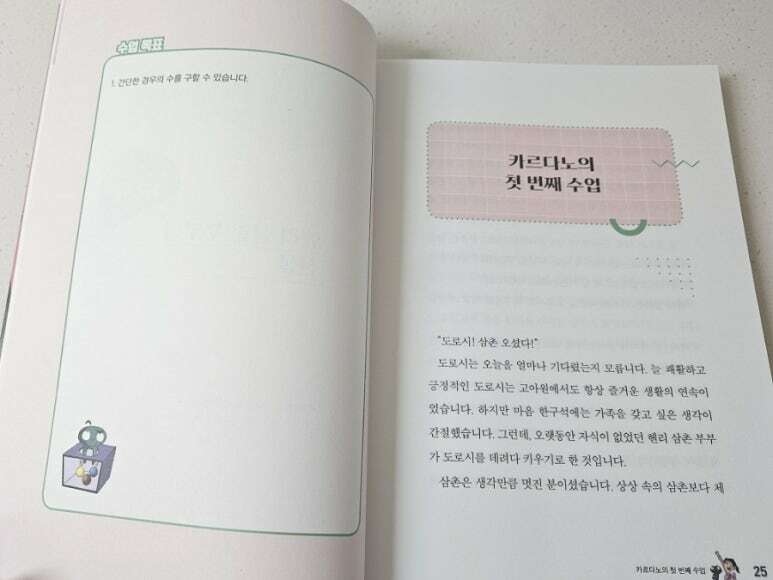 수업 목표
1. 간단한 경우의 수를 구할 수 있습니다.
카르다노의
첫 번째 수업
"도로시! 삼촌 오셨다!"
도로시는 오늘을 얼마나 기다렸는지 모릅니다. 늘 쾌활하고
긍정적인 도로시는 고아원에서도 항상 즐거운 생활의 연속이
었습니다. 하지만 마음 한구석에는 가족을 갖고 싶은 생각이
간절했습니다. 그런데, 오랫동안 자식이 없었던 헨리 삼촌 부부
가 도로시를 데려다 키우기로 한 것입니다.
삼촌은 생각만큼 멋진 분이셨습니다. 상상 속의 삼촌보다 세
카르다노의 첫 번째 수업 25